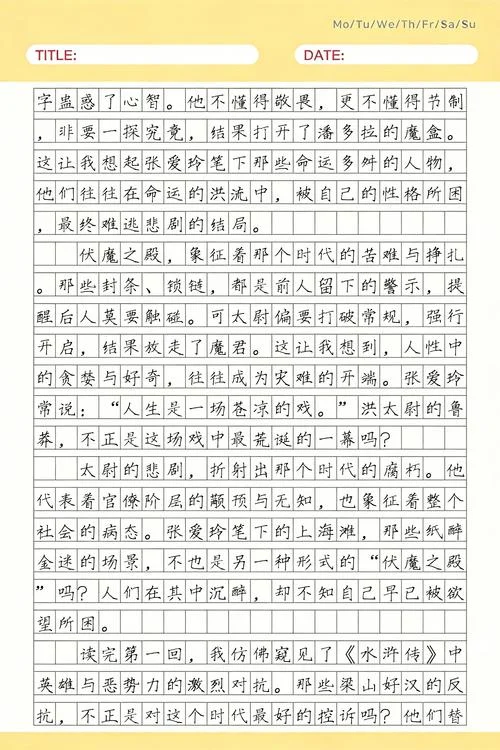 Mo/Tu/We/Th/Fr/Sa/Su
TITLE:
DATE:
字蛊惑了心智。他不懂得敬畏，更不懂得节制
，非要一探究竟，结果打开了潘多拉的魔盒。
这让我想起张爱玲笔下那些命运多舛的人物，
他们往往在命运的洪流中，被自己的性格所困
，最终难逃悲剧的结局。
伏魔之殿，象征着那个时代的苦难与挣扎
。那些封条、锁链，都是前人留下的警示，提
醒后人莫要触碰。可太尉偏要打破常规，强行
开启，结果放走了魔君。这让我想到，人性中
的贪婪与好奇，往往成为灾难的开端。张爱玲
常说：“人生是一场苍凉的戏。”洪太尉的鲁
莽，不正是这场戏中最荒诞的一幕吗？
太尉的悲剧，折射出那个时代的腐朽。他
代表着官僚阶层的颟顸与无知，也象征着整个
社会的病态。张爱玲笔下的上海滩，那些纸醉
金迷的场景，不也是另一种形式的“伏魔之殿
”吗？人们在其中沉醉，却不知自己早已被欲
望所困。
读完第一回，我仿佛窥见了《水浒传》中
英雄与恶势力的激烈对抗。那些梁山好汉的反
抗，不正是对这个时代最好的控诉吗？他们替